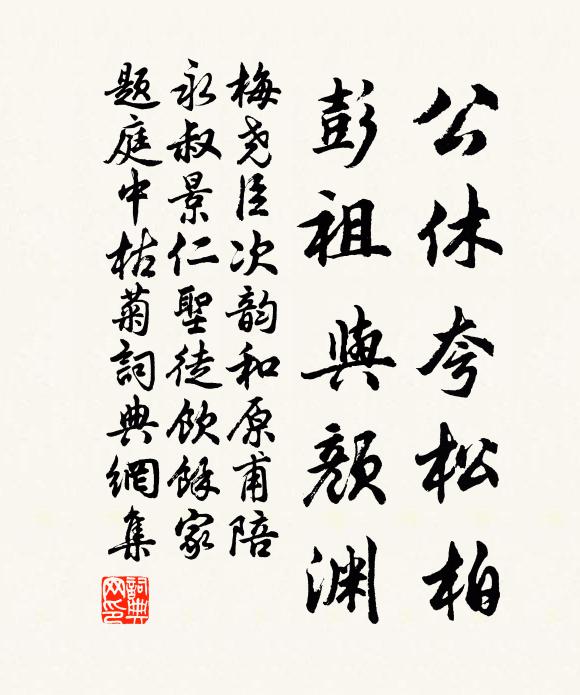 公休夸松柏
彭祖與顏渊
梅尧臣次韵和原甫陪
永叔景仁聖徒飲餘家
題庭中枯菊詞典網集
詞典
网印